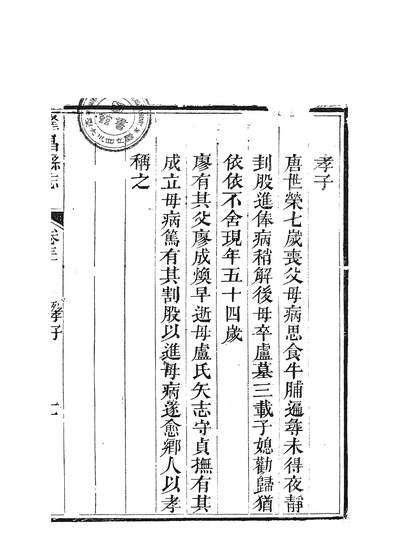 孝子
唐世榮七歲喪父母病思食牛脯遍尋未得夜靜
刲股進俸病稍解後毋卒廬墓三載子媳勸歸猶
依依不舍現年五十四歲
廖有其父廖成煥早逝毋盧氏矢志守貞撫有其
成立毋病篤有其割股以進毋病遂愈鄉人以孝
稱之
隆昌縣志
孝子